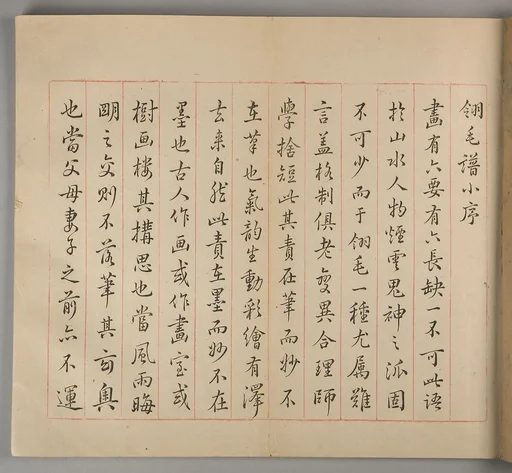 翎毛譜小序
畫有六要有六長缺一不可此語
於山水人物煙雲鬼神之派固
不可少而于翎毛一種尤属難
言蓋格制俱老變異合理師
學捨短此其責在筆而妙不
在筆也氣韵生動彩繪有澤
去来自然此責在墨而妙不在
墨也古人作画或作畫室或
樹画楼其搆思也當風雨晦
明之交则不落筆其玄奥
也當父母妻子之前亦不運